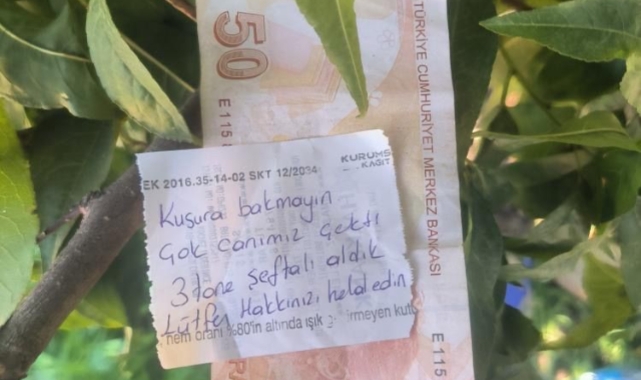 50
E 115
TÜRKİYE CUMHURİYET MERKEZ BANKASI
EK 2016.35-14-02 SKT 12/2034
KURUMS
KAĞIT
Kusura bakmayın
Çok canımız çekti
3 tane şeftali aldık
Lütfen Hakkınızı helal edin
nem oranı %80'in altında ışık girmeyen kutu
E 115